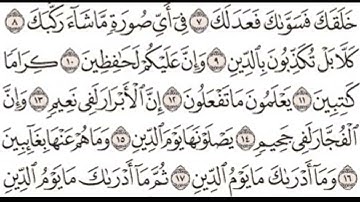 خَلَقَكَ فَسَوَّىٰكَ فَعَدَلَكَ ۝٧ فِىٓ أَىِّ صُورَةٍ مَّا شَآءَ رَكَّبَكَ ۝٨
كَلَّا بَلْ تُكَذِّبُونَ بِٱلدِّينِ ۝٩ وَإِنَّ عَلَيْكُمْ لَحَٰفِظِينَ ۝١٠ كِرَامًا
كَٰتِبِينَ ۝١١ يَعْلَمُونَ مَا تَفْعَلُونَ ۝١٢ إِنَّ ٱلْأَبْرَارَ لَفِى نَعِيمٍ ۝١٣ وَإِنَّ
ٱلْفُجَّارَ لَفِى جَحِيمٍ ۝١٤ يَصْلَوْنَهَا يَوْمَ ٱلدِّينِ ۝١٥ وَمَا هُمْ عَنْهَا بِغَآئِبِينَ
۝١٦ وَمَآ أَدْرَىٰكَ مَا يَوْمُ ٱلدِّينِ ۝١٧ ثُمَّ مَآ أَدْرَىٰكَ مَا يَوْمُ ٱلدِّينِ